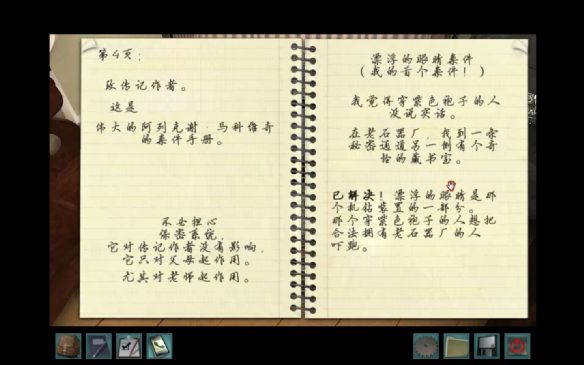 第4页：
致传记作者。
这是
伟大的阿列克谢·马科维奇
的案件手册。
不必担心
保密系统，
它对传记作者没有影响，
它只对父母起作用。
尤其对老师起作用。
漂浮的眼睛案件
（我的首个案件！）
我觉得穿紫色袍子的人
没说实话。
在老石器厂，我到一条
秘密通道另一侧有个奇
怪的藏书室。
已解决！漂浮的眼睛是那
个扎钻装置的一部分。
那个穿紫色袍子的人想把
合法拥有老石器厂的人
吓跑。